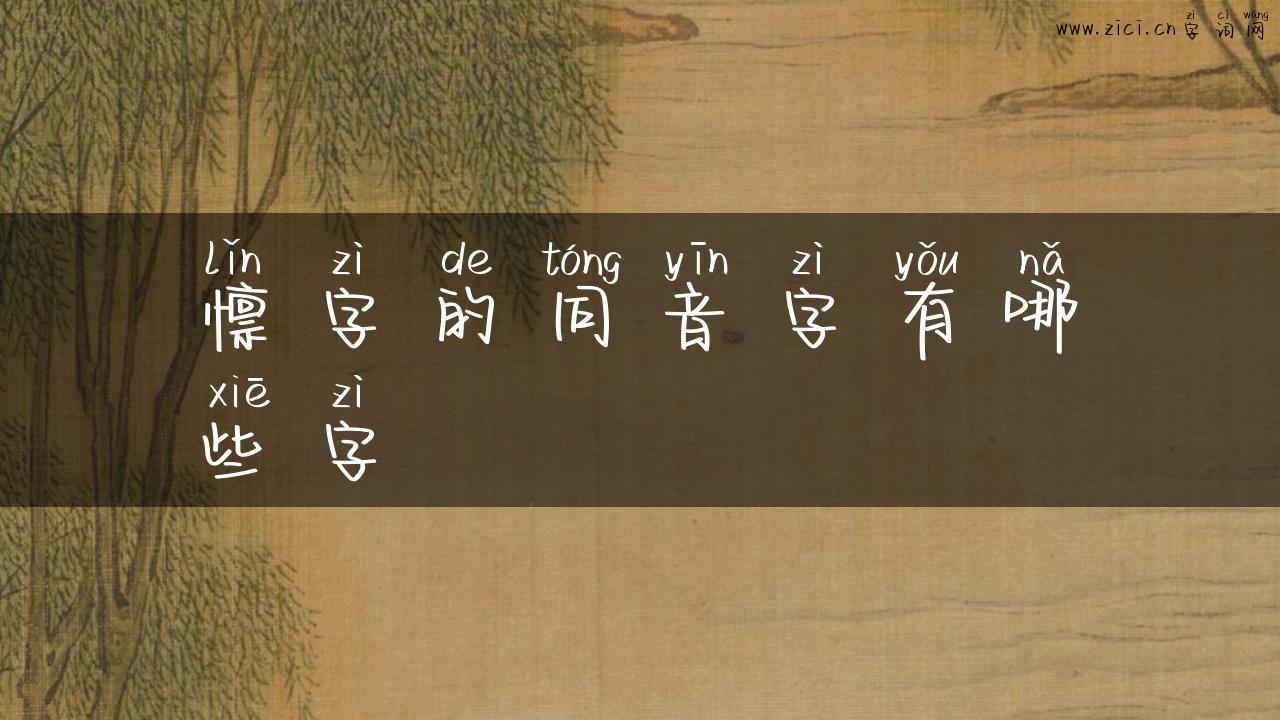 zì cí wǎng
www.zici.cn 字词网
lǐn zì de tóng yīn zì yǒu nǎ
懔字的同音字有哪
xiē zì
些字